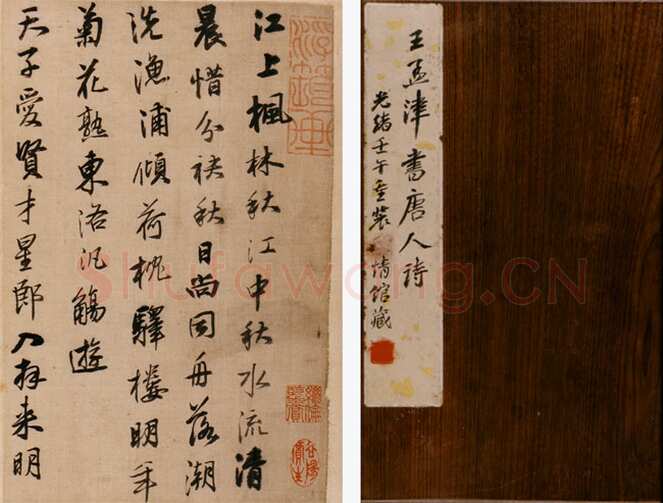 江上楓林秋江中秋水流清
晨惜分袂秋日尚同舟落潮
洗漁浦傾荷枕驛樓明年
菊花熟東洛汎觴遊
天子愛賢才星郎入拜来明
王孟津書唐人詩
光緒壬午重裝 情館藏
Shufawang.CN